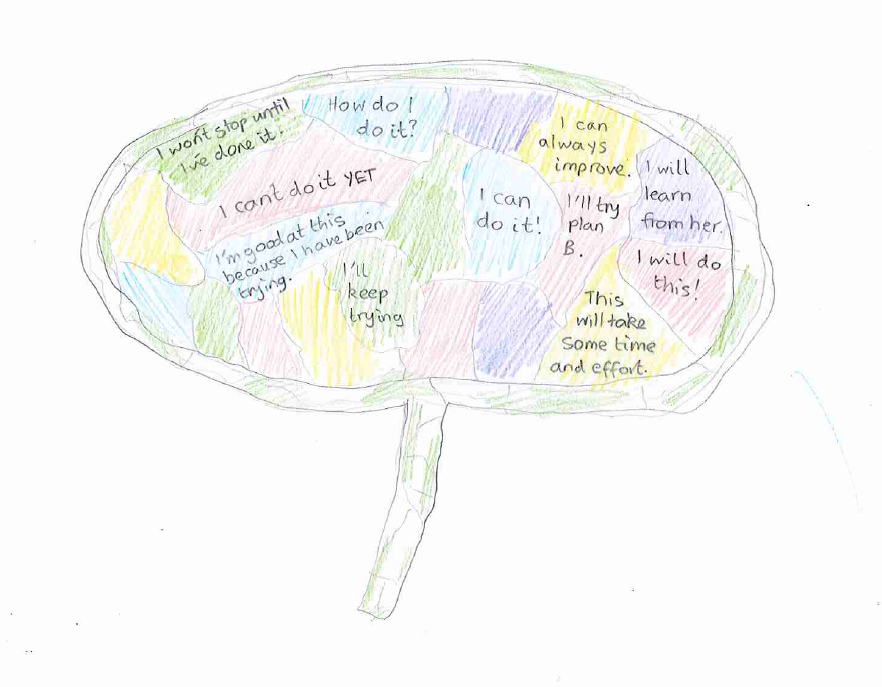 I won't stop until
I've done it.
How do I
do it?
I can
always
improve.
I will
learn
from her.
I can't do it YET
I can
do it!
I'll try
plan
B.
I'm good at this
because I have been
trying.
I'll
keep
trying
I will do
this!
This
will take
Some time
and effort.